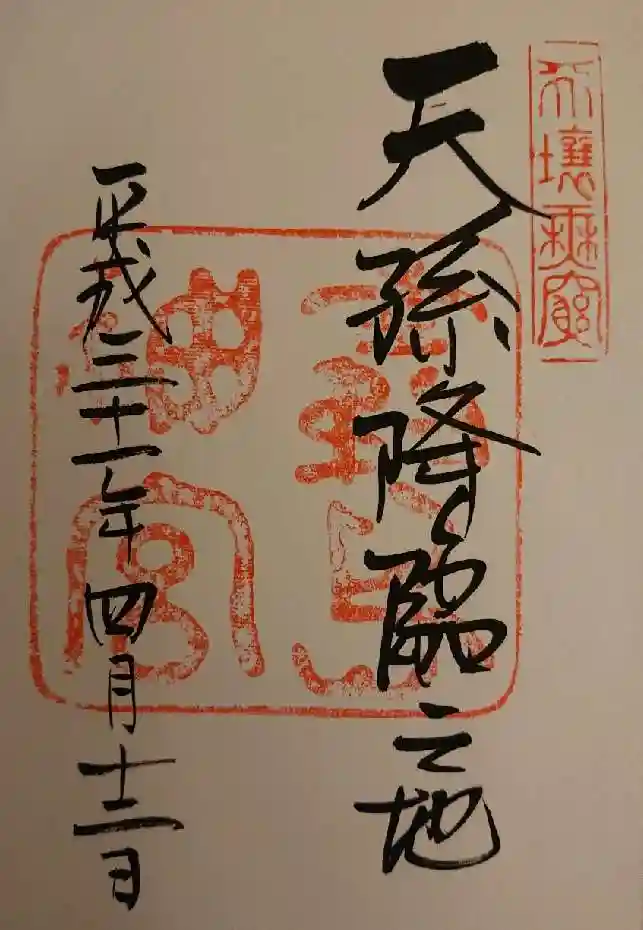 天壤無窮
天孫降臨之地
霧島
神宮
平成三十一年四月十二日